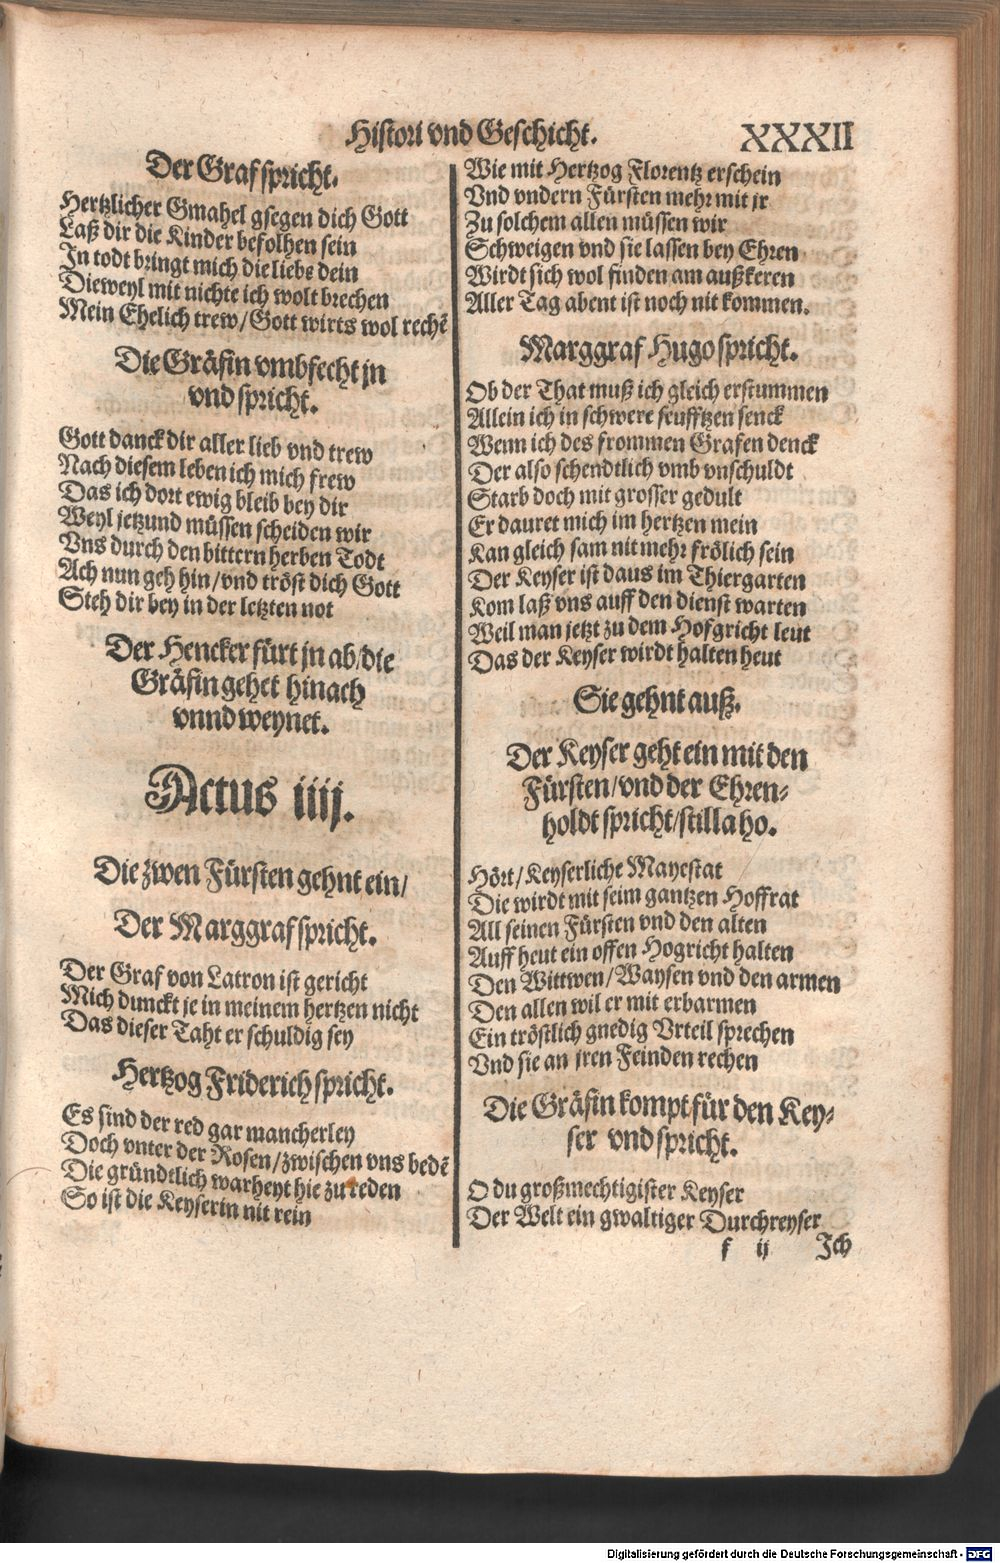 Histori vnd Geschicht.
XXXII
Der Graf spricht.
Hertzlicher Gmahel gsegen dich Gott
Laß dir die Kinder befolhen sein
In todt bringt mich die liebe dein
Dieweyl mit nichte ich wolt brechen
Mein Ehelich trew/Gott wirts wol rechẽ
Die Gräfin vmbfecht jn
vnd spricht.
Gott danck dir aller lieb vnd trew
Nach diesem leben ich mich frew
Das ich dort ewig bleib bey dir
Weyl jetzund müssen scheiden wir
Vns durch den bittern herben Todt
Ach nun geh hin/vnd tröst dich Gott
Steh dir bey in der letzten not
Der Hencker fürt jn ab/die
Gräfin gehet hinach
vnnd weynet.
Actus iiij.
Die zwen Fürsten gehnt ein/
Der Marggraf spricht.
Der Graf von Latron ist gericht
Mich dunckt je in meinem hertzen nicht
Das dieser Taht er schuldig sey
Hertzog Friderich spricht.
Es sind der red gar mancherley
Doch vnter der Rosen/zwischen vns bedẽ
Die gründtlich warheyt hie zu reden
So ist die Keyserin nit rein
Wie mit Hertzog Florentz erschein
Vnd vndern Fürsten mehr mit jr
Zu solchem allen müssen wir
Schweigen vnd sie lassen bey Ehren
Wirdt sich wol finden am außkeren
Aller Tag abent ist noch nit kommen.
Marggraf Hugo spricht.
Ob der That muß ich gleich erstummen
Allein ich in schwere seufftzen senck
Wenn ich des frommen Grafen denck
Der also schendtlich vmb vnschuldt
Starb doch mit grosser gedult
Er dauret mich im hertzen mein
Kan gleich sam nit mehr frölich sein
Der Keyser ist daus im Thiergarten
Kom laß vns auff den dienst warten
Weil man jetzt zu dem Hofgricht leut
Das der Keyser wirdt halten heut
Sie gehnt auß.
Der Keyser geht ein mit den
Fürsten/vnd der Ehren-
holdt spricht/stilla ho.
Hört/Keyserliche Mayestat
Die wirdt mit seim gantzen Hoffrat
All seinen Fürsten vnd den alten
Auff heut ein offen Hogricht halten
Den Wittwen/Waysen vnd den armen
Den allen wil er mit erbarmen
Ein tröstlich gnedig Vrteil sprechen
Vnd sie an jren Feinden rechen
Die Gräfin kompt für den Key-
ser vnd spricht.
O du großmechtigister Keyser
Der Welt ein gwaltiger Durchreyser
f ij
Ich
Digitalisierung gefördert durch die Deutsche Forschungsgemeinschaft - DFG